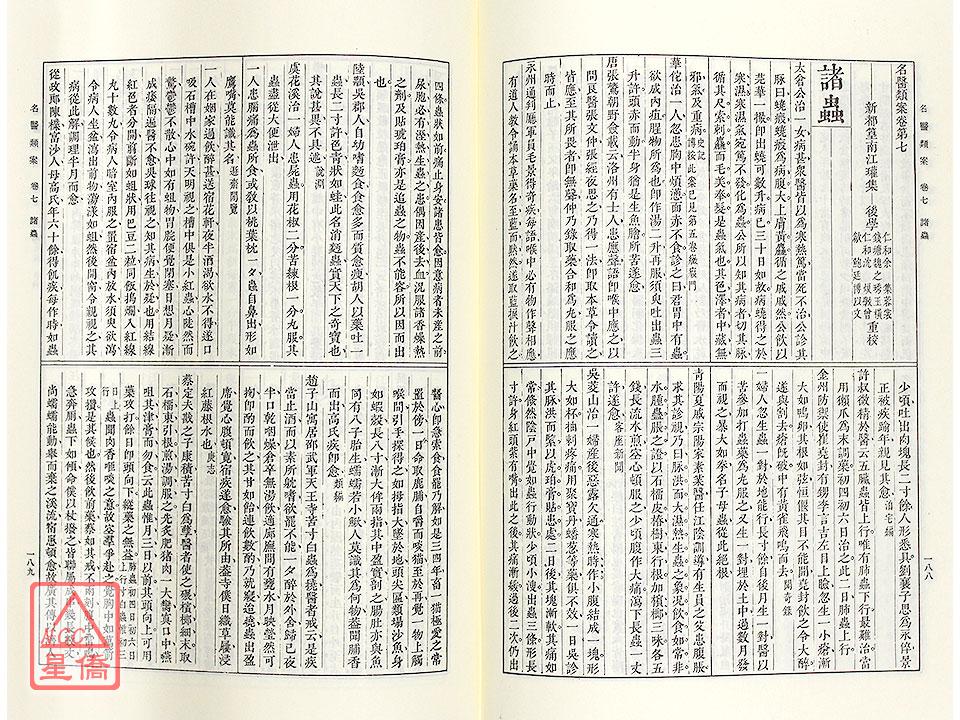 名醫類案 卷七 諸蟲 一八八
名醫類案卷第七
新都篁南江瓘集 後學 仁和余 集蓉裳 錢塘魏之琇玉橫 仁和沈烺敦曾 歙鮑廷博以文 重校
諸蟲
太倉公治一女病甚衆醫皆以爲寒熱篤當死不治公診其
脉曰蟯瘕蟯瘕爲病腹大上膚黃麤循之戚戚然公飲以
芫華一撮卽出蟯可數升病已三十日如故病蟯得之於
寒濕寒濕氣宛篤不發化爲蟲公所以知其病者切其脉
循其尺索刺麤而毛美奉髮是蟲氣也其色澤者中藏無
邪氣及重病史記
華佗治一人忽患胸中煩懣面赤不食診之曰君胃中有蟲
欲成內疽腥物所爲也卽作湯二升再服須臾吐出蟲三
升許頭赤而動半身猶是生魚膾所苦遂愈
唐張鷟朝野僉載云洛州有士人患應聲語卽喉中應之以
問良醫張文仲張經夜思之乃得一法卽取本草令讀之
皆應至其所畏者卽無聲仲乃錄取藥合和爲丸服之應
時而止
永州通判廳軍員毛景得奇疾每語喉中必有物作聲相應
有道人教令誦本草藥名至藍而默然遂取藍捩汁飲之
少頃吐出肉塊長二寸餘人形悉具劉襄子思爲永倅景
正被疾踰年親見其愈泊宅編
許叔微精於醫云五臟蟲皆上行唯有肺蟲下行最難治當
用獺爪爲末調藥初四初六日治之此二日肺蟲上行
金州防禦使崔堯封有甥李言吉左目上瞼忽生一小瘡漸
大如鴨卵其根如弦恒偃其目不能開堯封飲之令大醉
遂與割去瘡旣破中有黃雀飛鳴而去聞奇錄
一婦人忽生蟲一對於地能行長寸餘自後月生一對醫以
苦參加打蟲藥爲丸服之又生一對埋於土中過數月發
而視之暴大如拳名子母蟲從此絕根
青陽夏戚宗陽家素業醫任江陰訓導有生員之父患腹脹
求其診視乃曰脉洪而大濕熱生蟲之象況飲食如常非
水腫蠱脹之證以石榴皮椿樹東行根加檳榔三味各五
錢長流水煎空心頓服之少頃腹作大痛瀉下長蟲一丈
許遂愈客座新聞
吳茭山治一婦產後惡露欠通寒熱時作小腹結成一塊形
大如杯抽刺疼痛用聚寶丹蟠葱等藥俱不效一日吳診
其脉洪而緊以琥珀膏貼患處二日後其塊漸軟其痛如
常倏然陰戶中覺如蟲行動狀少頃小溲出蟲三條形長
寸許身紅頭紫有嘴出此之後其痛漸緩過後二次仍出
四條蟲狀如前痛止身安諸患皆愈因意病者未產之前
尿胞必有溼熱生蟲之患偶因產後去血況服諸香燥熱
之劑及貼琥珀膏亦是追蟲之物蟲不能容所以因而而出
也
陸顒吳郡人自幼嗜麪食食愈多而質愈瘦胡人以藥吐一
蟲長二寸許色青狀如蛙此名消麪蟲實天下之奇寶也
其說甚異不具述說淵
虞花溪治一婦人患屍蟲用花椒二分苦楝根一分丸服其
蟲盡從大便泄出
一人患腸痛爲蟲所食或敎以桃葉枕一夕蟲自鼻出形如
鷹嘴莫能識其名遯齋閒覽
一人在姻家過飮醉甚送宿花軒夜半酒渴欲水不得遂口
吸石槽中水碗許天明視之槽中俱是小紅蟲心陡然而
驚鬱鬱不散心中如有蛆物胃脘便覺閉塞日想月疑漸
成痿膈遍醫不愈吳球往視之知其病生於疑也用結線
紅色者分開剪斷如蛆狀用巴豆二粒同飯搗爛入紅線
九十數丸令病人暗室內服之置宿盆內放水須臾欲瀉
令病人坐盆瀉出前物蕩漾如蛆然後開窗令親視之其
病從此解調理半月而愈
從政郞陳樸富沙人母高氏年六十餘得飢疾每作時如蟲
齧心卽急索食食罷乃解如是三四年畜一猫極愛之常
置於旁一日命取鹿脯自嚼而啖猫至於再覺一物上觸
喉間引手探得之如拇指大墜於地頭尖匾類塌沙魚身
如蝦殼長八寸漸大侔兩指其中盈實剖之腸肚亦與魚
同有八子胎生蠕蠕若小鰍人莫識其爲何物蓋聞脯香
而出高氏疾卽愈類編
趙子山寓居邵武軍天王寺苦寸白蟲爲撓醫者戒云是疾
當止酒而以素所躭嗜欲罷不能一夕醉於外舍歸已夜
半口乾咽燥倉卒無湯飮適廊廡間有甕水月映瑩然可
掬卽酌而飮之其甘如飴連飮數酌乃就寢迨曉蟲出盈
席覺心腹頓寬宿疾遂愈驗其所由蓋寺僕日織草屨浸
紅藤根水也庚志
蔡定夫戡之子康積苦寸白爲孽醫者使之碾檳榔細末取
石榴東引根煎湯調服之先炙肥猪肉一大臠寘口中嚥
咀其津膏而勿食云此蟲惟月三日以前其頭向上可用
藥攻打餘日頭向下縱藥之無益
蟲聞肉香咂啖之意故空羣爭赴之覺胸中如萬箭
攻攢是其候也然後飮前藥蔡如其戒不兩刻腹中
急奔厠蟲下如傾命僕以杖撥之皆聯屬
尚蠕蠕能動舉而棄之溪流宿患頓愈故廣其傳以
名醫類案 卷七 諸蟲 一八九
NCC
星僑